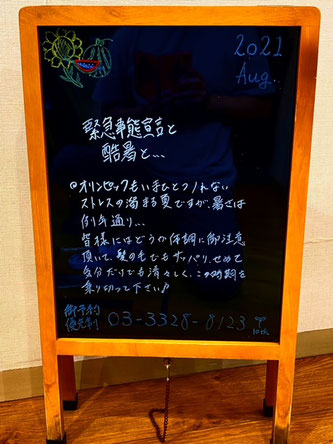 2021
Aug.
緊急事態宣言と
酷暑と...
オリンピックもいまひとつノれない
ストレスの溜まる夏ですが、暑さは
例年通り...
皆様にはどうか体調に御注意
頂いて、髪の毛でもサッパリ、せめて
気分だけでも清々しく、この時期を
乗り切って下さい♪
御予約
優先制
03-3328-0123